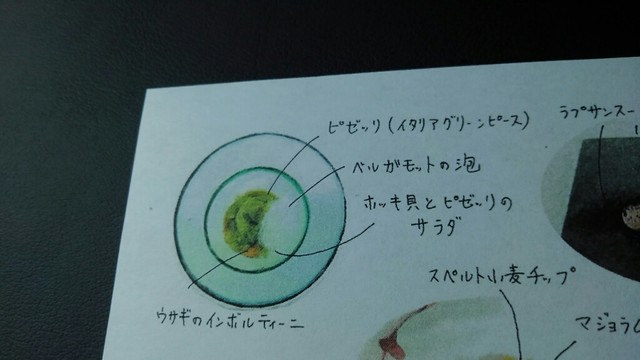 ピゼッリ(イタリアグリーンピース)
ベルガモットの泡
ホッキ貝とピゼッリの
サラダ
ウサギのインボルティーニ
ラプサンスー
スペルト小麦チップ
マジョラム